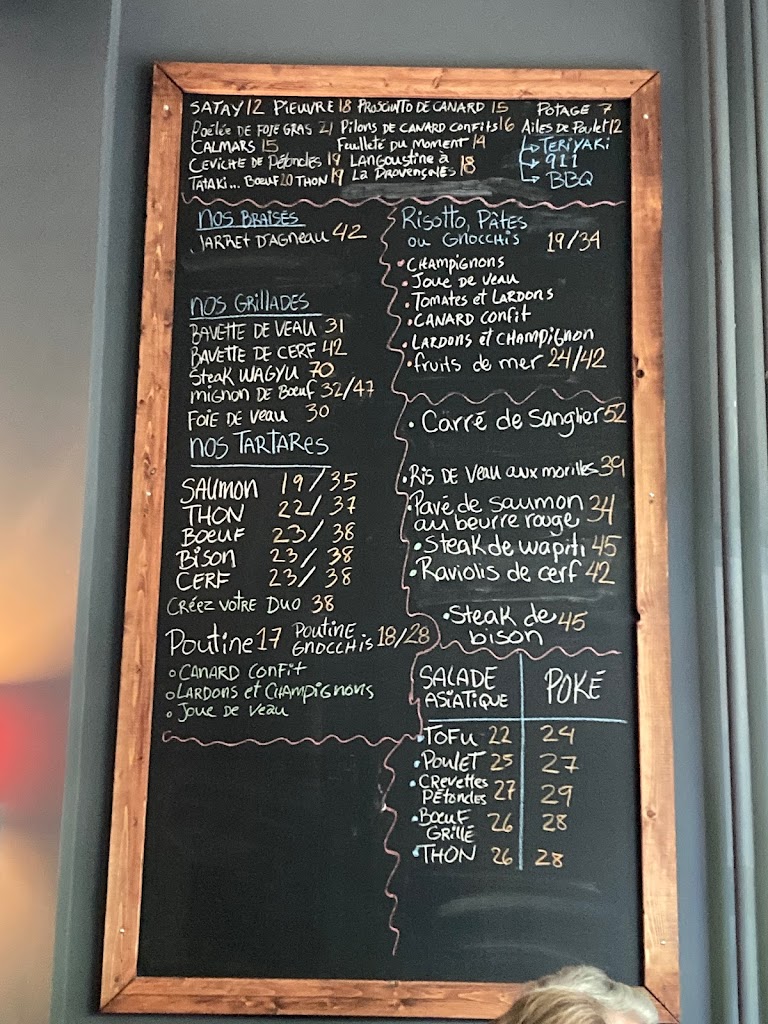 SATAY 12 PIEUVRE 18 PROSCIUTO DE CANARD 15 POTAGE 7
POÊLÉE DE FOIE GRAS 21 PILONS DE CANARD CONFITS 16 AILES DE POULET 12
CALMARS 15 FEUILLETÉ DU MOMENT 14 TERIYAKI
CEVICHE DE PÉTONCLES 19 LANGOUSTINE À 911
TATAKI... BOEUF 20 THON 19 LA PROVENÇALES 18 BBQ
NOS BRAISÉS
JARRET D'AGNEAU 42
NOS GRILLADES
BAVETTE DE VEAU 31
BAVETTE DE CERF 42
STEAK WAGYU 70
MIGNON DE BOEUF 32/47
FOIE DE VEAU 30
NOS TARTARES
SAUMON 19/35
THON 22/37
BOEUF 23/38
BISON 23/38
CERF 23/38
CRÉEZ VOTRE DUO 38
Poutine 17 POUTINE GNOCCHIS 18/28
CANARD CONFIT
LARDONS ET CHAMPIGNONS
JOUE DE VEAU
RISOTTO, PÂTES
OU GNOCCHIS 19/34
• CHAMPIGNONS
• JOUE DE VEAU
• TOMATES ET LARDONS
• CANARD CONFIT
• LARDONS ET CHAMPIGNON
• fruits de mer 24/42
• Carré de Sanglier 52
• RIS DE VEAU AUX MORILLES 39
• Pavé de saumon
au beurre rouge 34
• Steak de wapiti 45
• Raviolis de cerf 42
• Steak de
bison 45
SALADE
ASIATIQUE POKÉ
• TOFU 22 24
• POULET 25 27
• CREVETTES
PÉTONCLES 27 29
• BOEUF
GRILLÉ 26 28
• THON 26 28